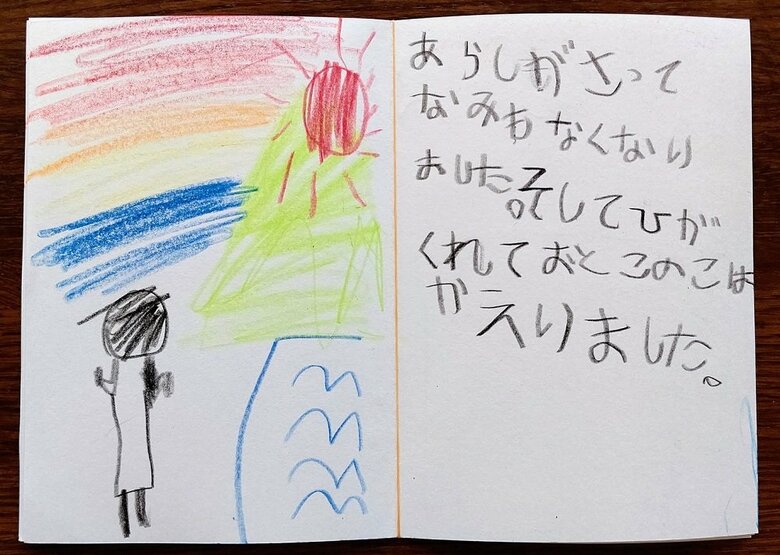 あらしがさって
なみもなくなり
ました。そしてひが
くれておとこのこは
かえりました。